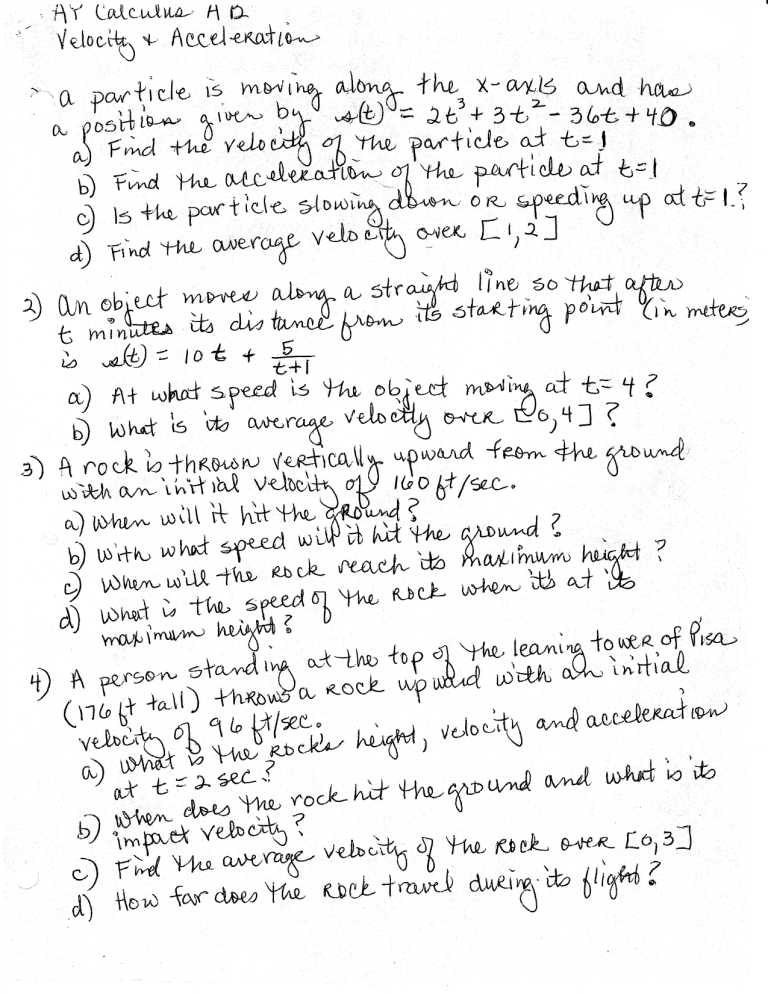 AP Calculus AB
Velocity & Acceleration
a particle is moving along the x-axis and has
a position given by s(t) = 2t³ + 3t² - 36t + 40.
a) Find the velocity of the particle at t=1
b) Find the acceleration of the particle at t=1
c) Is the particle slowing down or speeding up at t=1.?
d) Find the average velocity over [1,2]
2) An object moves along a straight line so that after
t minutes its distance from its starting point (in meters)
is s(t) = 10t + 5/(t+1)
a) At what speed is the object moving at t=4?
b) What is its average velocity over [0,4]?
3) A rock is thrown vertically upward from the ground
with an initial velocity of 160 ft/sec.
a) When will it hit the ground?
b) With what speed will it hit the ground?
c) When will the rock reach its maximum height?
d) What is the speed of the rock when it's at its
maximum height?
4) A person standing at the top of the leaning tower of Pisa
(176 ft tall) throws a rock upward with an initial
velocity of 96 ft/sec.
a) What is the rock's height, velocity and acceleration
at t=2 sec.?
b) When does the rock hit the ground and what is its
impact velocity?
c) Find the average velocity of the rock over [0,3]
d) How far does the rock travel during its flight?